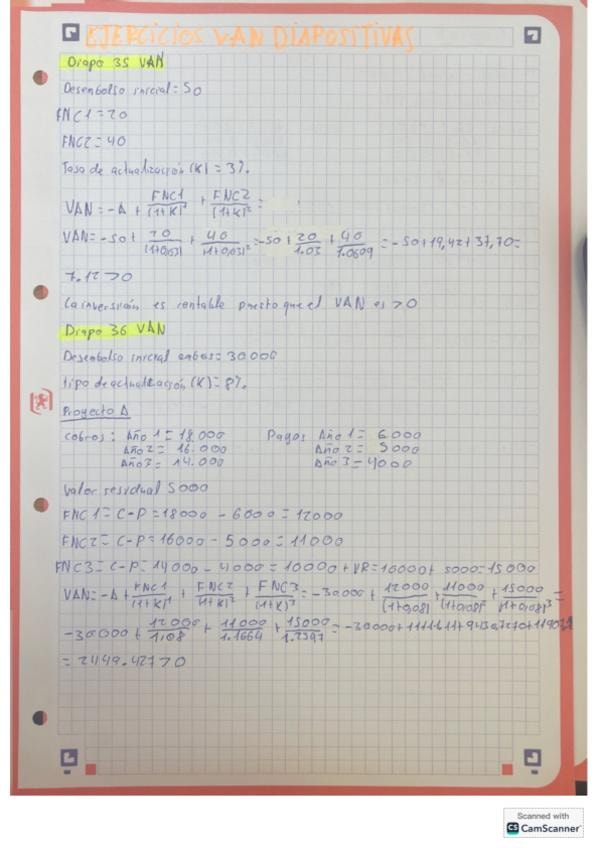 EJERCICIOS VAN DIAPOSITIVAS
Diapo 35 VAN
Desembolso inicial = 50
FNC1 = 20
FNC2 = 40
Tasa de actualización (K) = 3%.
VAN = -A + FNC1/(1+K)¹ + FNC2/(1+K)² =
VAN = -50 + 20/(1+0,03)¹ + 40/(1+0,03)² = -50 + 20/1.03 + 40/1.0609 = -50+19,42+37,70=
7.12>0
La inversión es rentable puesto que el VAN es >0
Diapo 36 VAN
Desembolso inicial ambos = 30000
tipo de actualización (K) = 8%.
Proyecto A
Cobros: Año 1 = 18.000 Pagos Año 1 = 6000
Año 2 = 16.000 Año 2 = 5000
Año 3 = 14.000 Año 3 = 4000
Valor residual 5000
FNC1 = C-P = 18000 - 6000 = 12000
FNC2 = C-P = 16000 - 5000 = 11000
FNC3 = C-P = 14000 - 4000 = 10000 + VR = 10000 + 5000 = 15000
VAN = -A + FNC1/(1+K)¹ + FNC2/(1+K)² + FNC3/(1+K)³ = -30000 + 12000/(1+0,08)¹ + 11000/(1+0,08)² + 15000/(1+0,08)³ =
-30000 + 12000/1,08 + 11000/1.1664 + 15000/1.2597 =
= 2449.42>0
Scanned with
CS CamScanner